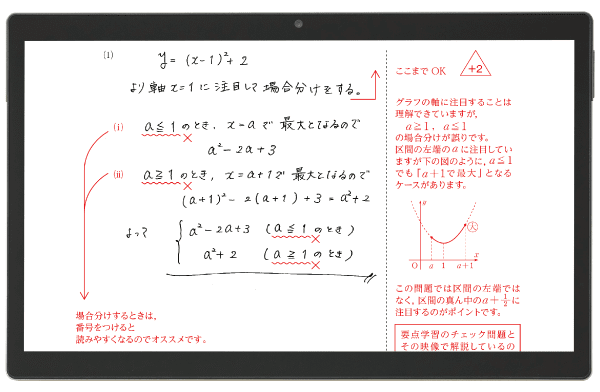 (1)
y = (x-1)²+2
より軸 x=1 に注目して場合分けをする。
(i)
a≦1 のとき、x=a で最大となるので
a²-2a+3
(ii)
a≧1 のとき、x=a+1で最大となるので
(a+1)²-2(a+1)+3=a²+2
よって
a²-2a+3 (a≦1のとき)
a²+2 (a≧1のとき)
場合分けするときは、
番号をつけると
読みやすくなるのでオススメです。
ここまで OK
+2
グラフの軸に注目することは
理解できていますが,
a≧1, a≦1
の場合分けが誤りです。
区間の左端の a に注目してい
ますが下の図のように, a≦1
でも「a+1で最大」となる
ケースがあります。
y
大
O a 1 a+1 x
この問題では区間の左端では
なく, 区間の真ん中の a+1/2 に
注目するのがポイントです。
要点学習のチェック問題と
その映像で解説しているの